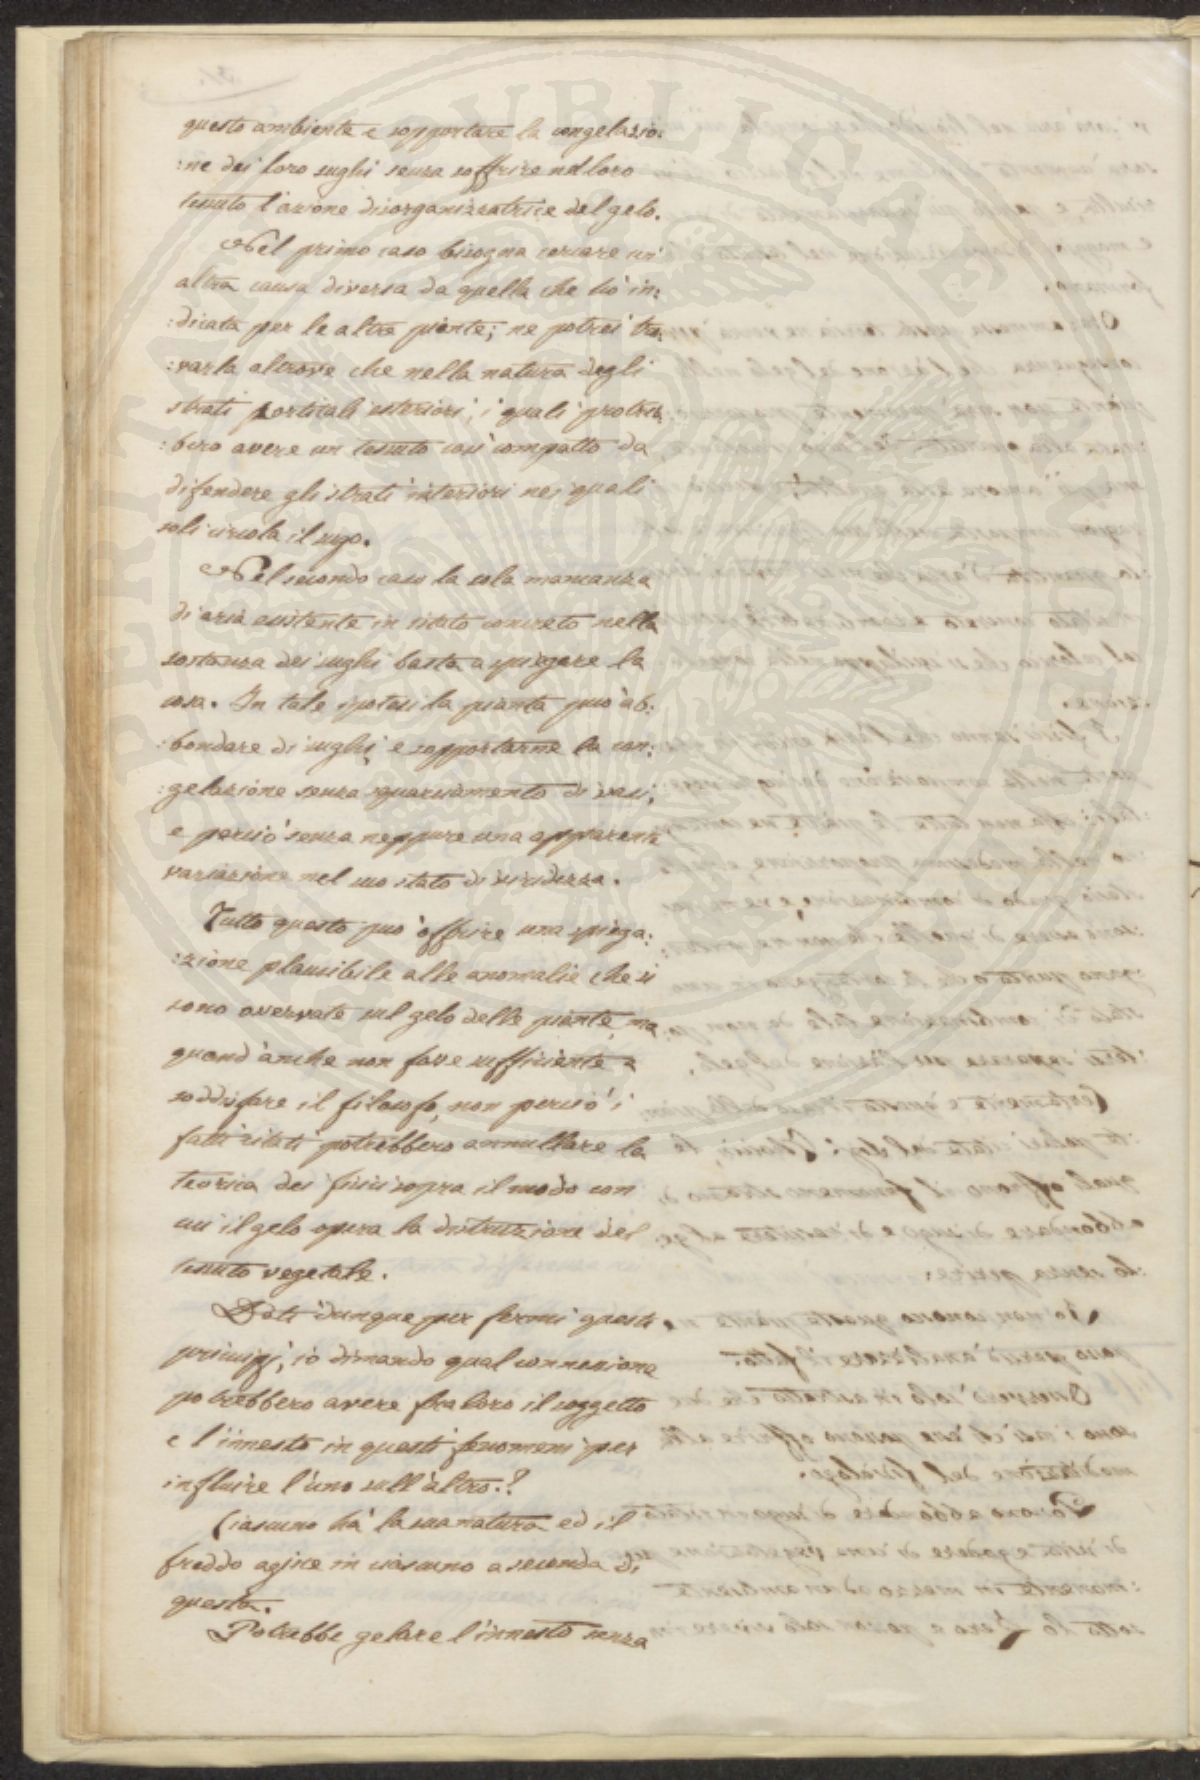 questo ambiente e sopportare la congelazio:
:ne dei loro sughi senza soffrire nel loro
tessuto l'azione disorganizzatrice del gelo.
Nel primo caso bisogna cercare un'
altra causa diversa da quella che hò in:
:dicata per le altre piante; ne potrei tro:
:varla altrove che nella natura degli
strati corticali esteriori, i quali potreb:
:bero avere un tessuto così compatto da
difendere gli strati interiori nei quali
soli circola il sugo.
Nel secondo caso la sola mancanza
di aria esistente in istato concreto nella
sostanza dei sughi basta a spiegare la
cosa. In tale ipotesi la pianta può ab:
:bondare di sughi, e sopportarne la con:
:gelazione senza squarciamento di vasi,
e perciò senza neppure una apparente
variazione nel suo stato di viridezza.
Tutto questo può offrire una spiega:
:zione plausibile alle anomalie che si
sono osservate sul gelo delle piante, ma
quand'anche non fosse sufficiente a
soddisfare il filosofo, non perciò i
fatti citati potrebbero annullare la
teorica dei fisici sopra il modo con
cui il gelo opera la distruzione del
tessuto vegetale.
Dati dunque per fermi questi
principj, io dimando qual connessione
potrebbero avere fra loro il soggetto
e l'innesto in questi fenomeni per
influire l'uno sull'altro.?
Ciascuno hà la sua natura ed il
freddo agisce in ciascuno a seconda di
questa.
Potrebbe gelare l'innesto senza